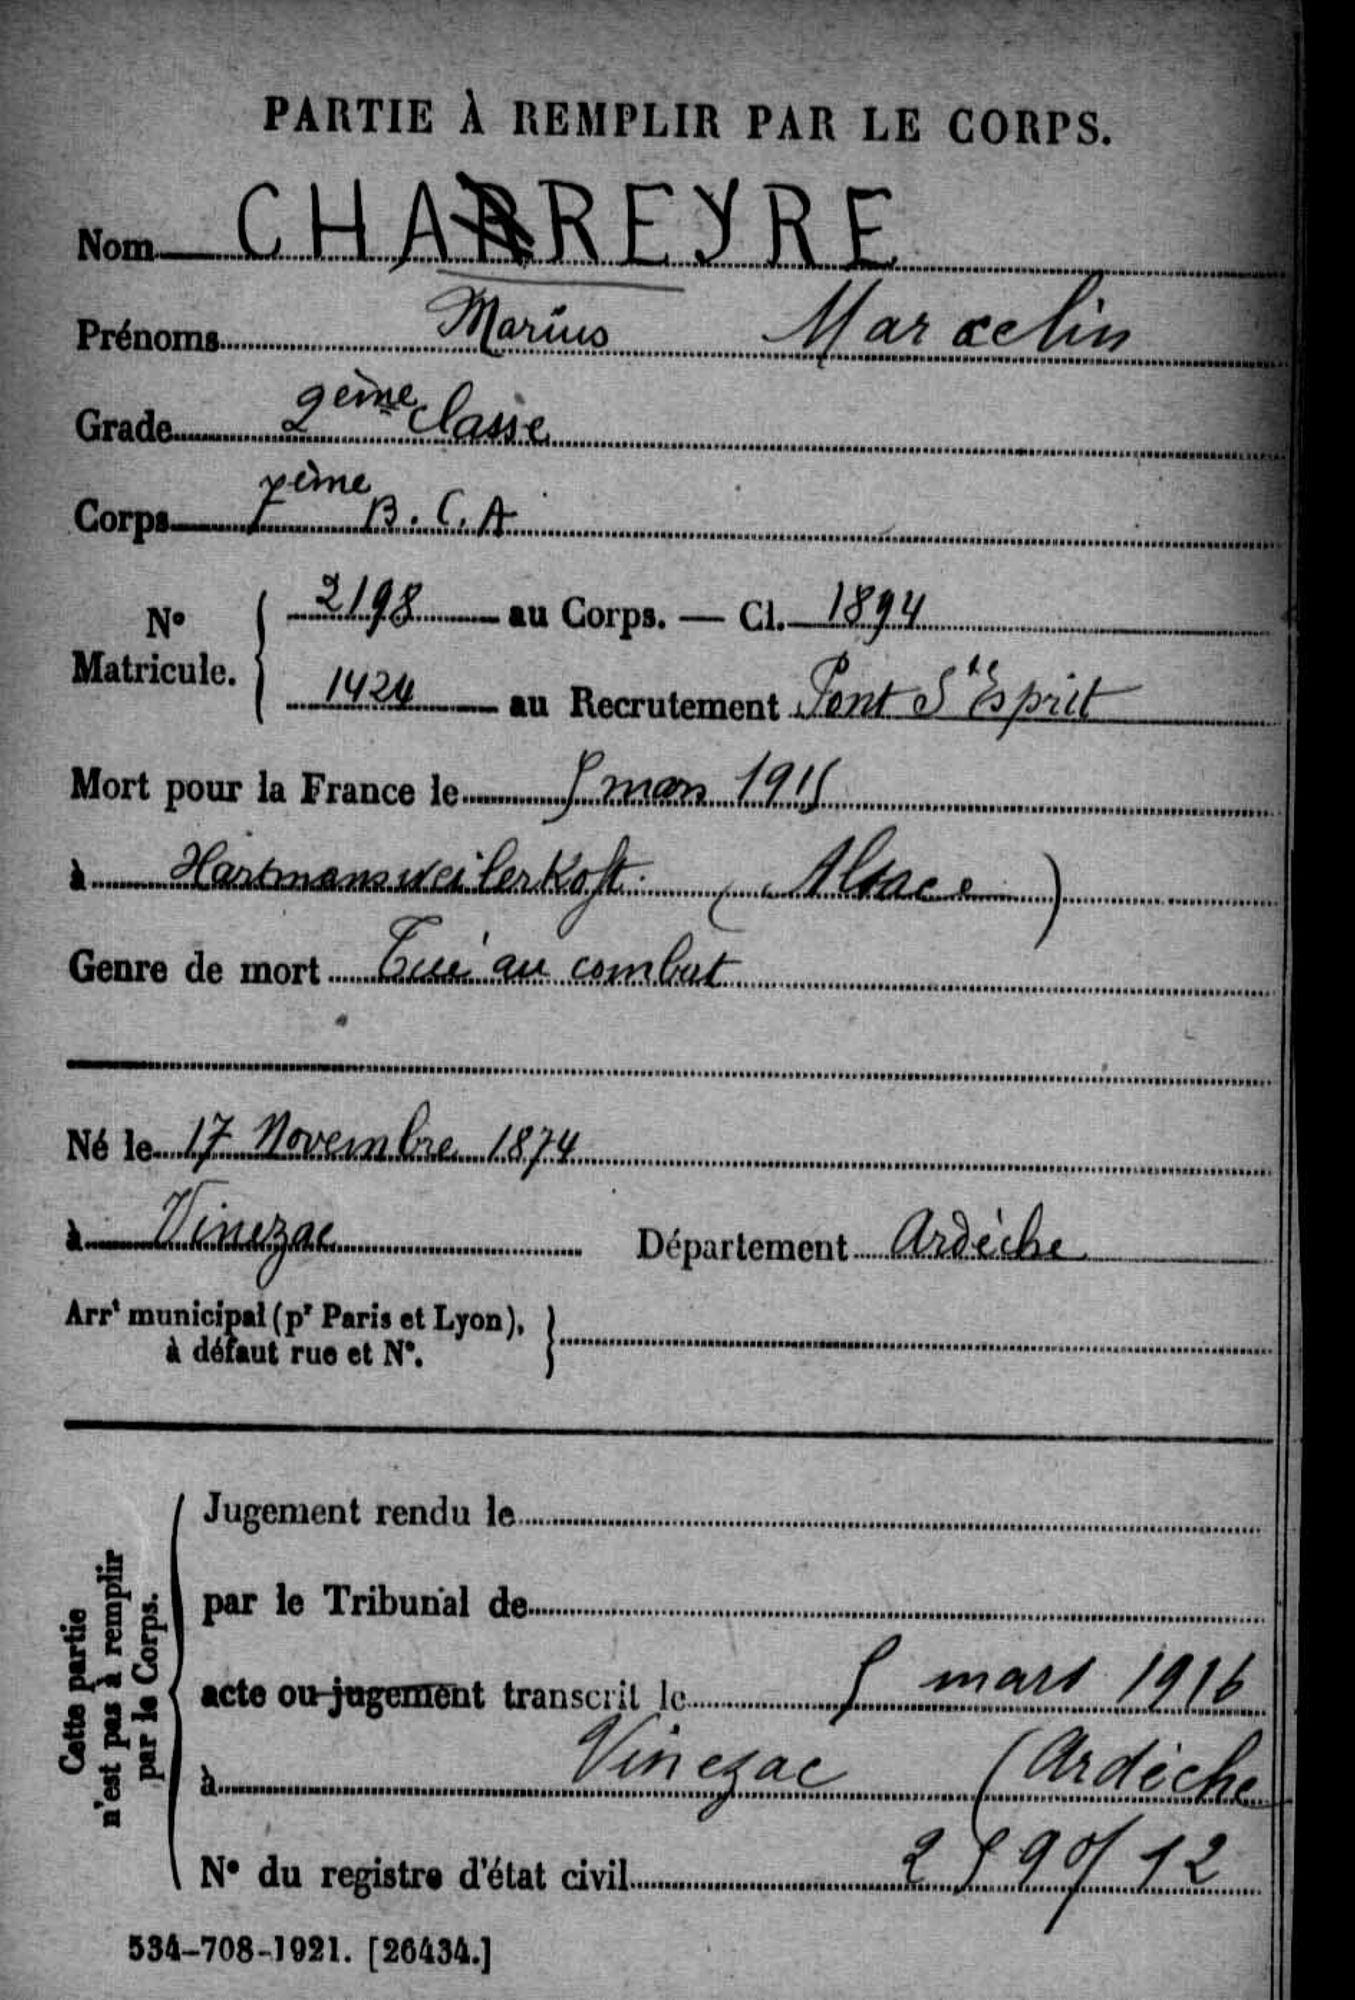 PARTIE À REMPLIR PAR LE CORPS.
Nom CHAREYRE
Prénoms Marius Marcelin
Grade 2ème classe
Corps 7ème B.C.A
N° Matricule. { 2198 au Corps. — Cl. 1894
1424 au Recrutement Pont St Esprit
Mort pour la France le 5 mars 1915
à Hartmansweilerkoft (Alsace)
Genre de mort Tué au combat
Né le 17 Novembre 1874
à Vinezac Département Ardèche
Arrt municipal (pr Paris et Lyon),
à défaut rue et N°.
Cette partie
n'est pas à remplir
par le Corps.
Jugement rendu le
par le Tribunal de
acte ou jugement transcrit le 5 mars 1916
à Vinezac (Ardèche
N° du registre d'état civil
534-708-1921. [26434.]